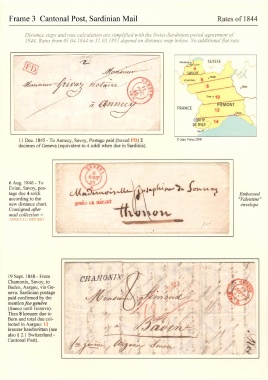 Frame 3 Cantonal Post, Sardinian Mail
Rates of 1844
Distance steps and rate calculation are simplified with the Swiss-Sardinian postal agreement of
1844. Rates from 01.04.1844 to 31.03.1851 depend on distance map below. No additional flat rate.
PD
2
Monsieur
Monsieur notaire
à annecy
FRANCE
PIEMONT
11 Dec. 1845 - To Annecy, Savoy. Postage paid (boxed PD) 2
decimes of Geneva (equivalent to 4 soldi when due in Sardinia).
6 Aug. 1846 - To
Savoy, pos-
tage due 4 soldi
according to the
new distance chart.
Consigned after
mail collection =
Mademoiselle Josephine de Sonnaz
thonon
Embossed
"Valentine"
envelope
19 Sept. 1848 - From
Chamonix, Savoy, to
Baden, Aargau, via Ge-
neva. Sardinian postage
paid confirmed by the
Then 8 kreuzer due to
Bern and total due col-
lected in Aargau: 12
kreuzer handwritten (see
also § 2.1 Switzerland -
Cantonal Post).
CHAMONIX
Monsieur
à Baden